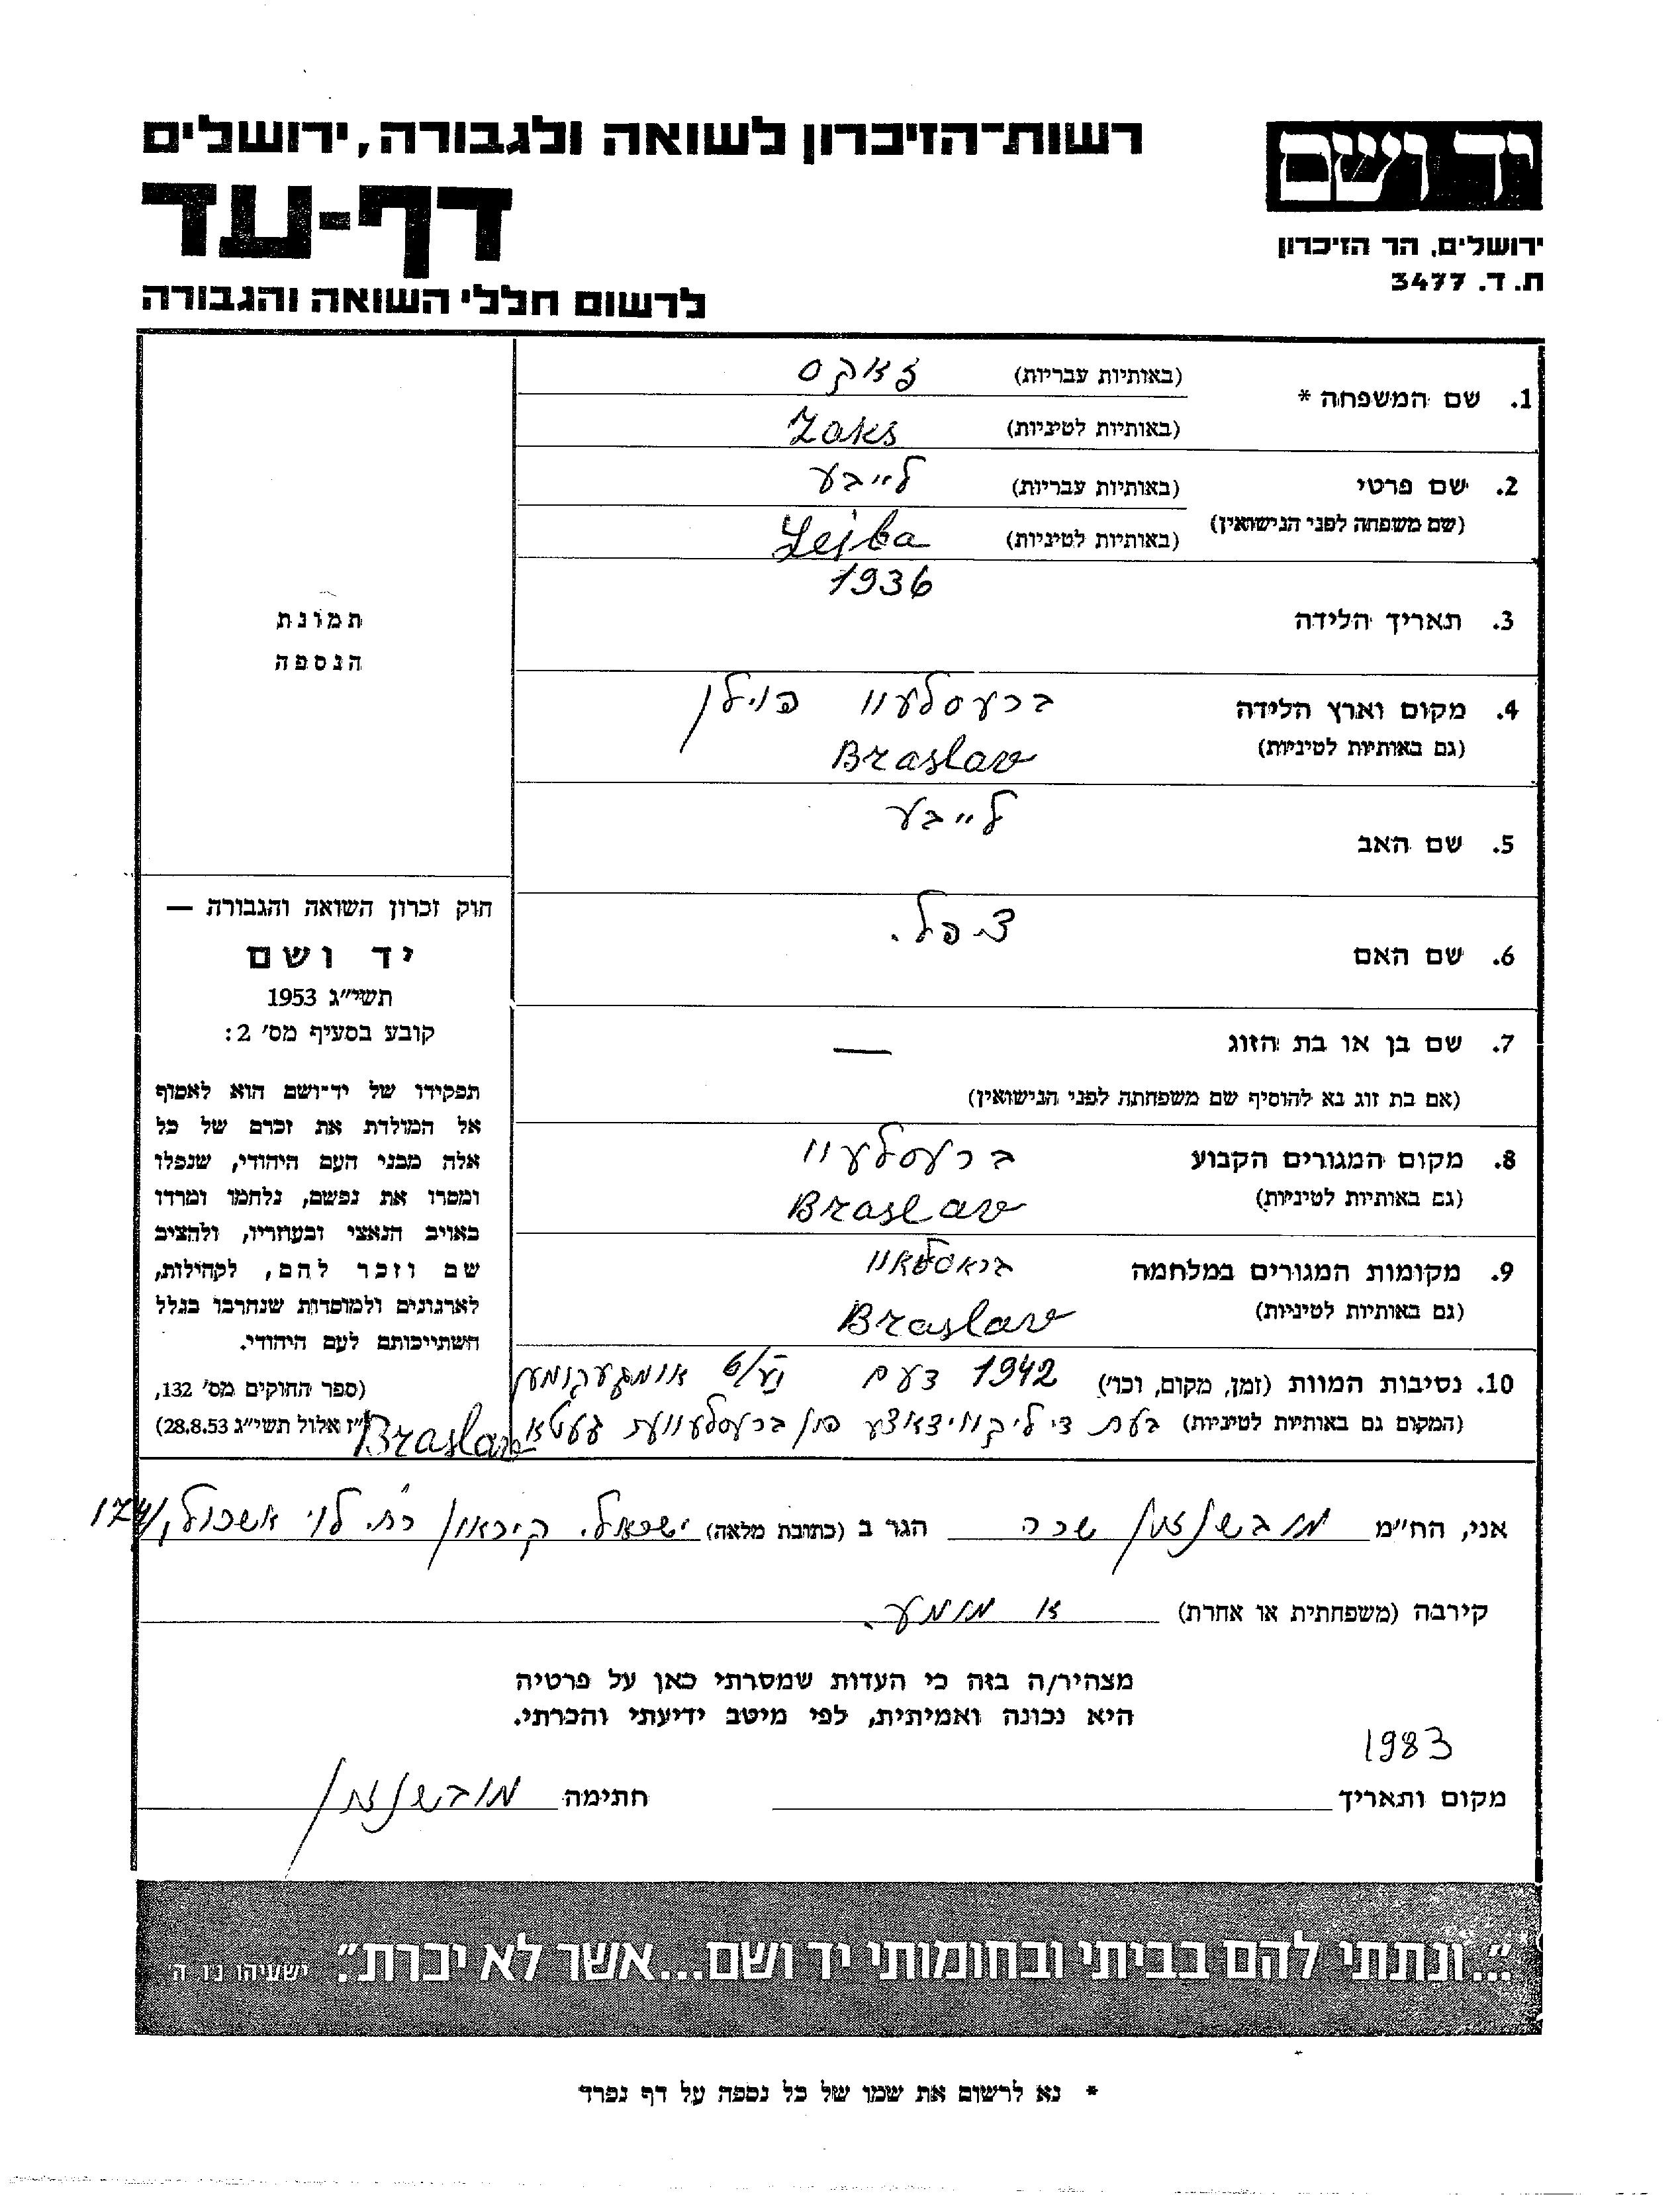 יד ושם
ירושלים, הר הזיכרון
ת.ד. 3477
רשות־הזיכרון לשואה ולגבורה, ירושלים
דף-עד
לרשום חללי השואה והגבורה
1. שם המשפחה *
(באותיות עבריות) זאקס
(באותיות לטיניות) Zaks
2. שם פרטי
(שם משפחה לפני הנישואין)
(באותיות עבריות) לייבע
(באותיות לטיניות) Lejba
3. תאריך הלידה 1936
4. מקום וארץ הלידה ברעסלעוו פוילן
(גם באותיות לטיניות) Braslav
5. שם האב לייבע
6. שם האם
7. שם בן או בת הזוג —
(אם בת זוג נא להוסיף שם משפחתה לפני הנישואין)
8. מקום המגורים הקבוע ברעסלעוו
(גם באותיות לטיניות) Braslav
9. מקומות המגורים במלחמה בראסלאוו
(גם באותיות לטיניות) Braslav
10. נסיבות המוות (זמן, מקום, וכו') 1942 דעם אומגעקומען
(המקום גם באותיות לטיניות) בעת די ליקווידאציע פון ברעסלעווער געטא Braslav
תמונת
הנספה
חוק זכרון השואה והגבורה —
יד ושם
תשי״ג 1953
קובע בסעיף מס' 2:
תפקידו של יד־ושם הוא לאסוף
אל המולדת את זכרם של כל
אלה מבני העם היהודי, שנפלו
ומסרו את נפשם, נלחמו ומרדו
באויב הנאצי ובעוזריו, ולהציב
שם וזכר להם, לקהילות,
לארגונים ולמוסדות שנחרבו בגלל
השתייכותם לעם היהודי.
(ספר החוקים מס' 132,
י״ז אלול תשי״ג 28.8.53)
אני, הח״מ שרה הגר ב (כתובת מלאה) ישראל. רח. לוי אשכול
קירבה (משפחתית או אחרת) א מומע.
מצהיר/ה בזה כי העדות שמסרתי כאן על פרטיה
היא נכונה ואמיתית, לפי מיטב ידיעתי והכרתי.
1983
מקום ותאריך
חתימה
"...ונתתי להם בביתי ובחומותי יד ושם...אשר לא יכרת". ישעיהו נ"ו, ה'
* נא לרשום את שמו של כל נספה על דף נפרד